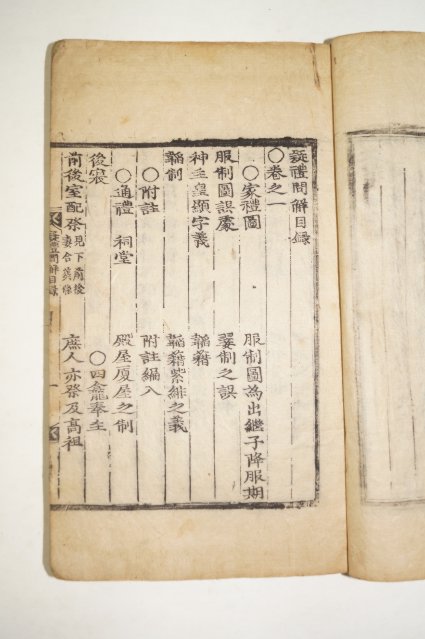 疑禮問解目錄
○卷之一
○家禮圖　服制圖為出繼子降服期
服制圖誤處　翣制之誤
神主皇顯字義　韜藉
韜制　韜藉紫緋之義
○附註　附註編入
○通禮　祠堂　殿屋厦屋之制
後寢　○四龕奉主
前後室配祭見下前後妻合葬條　庶人亦祭及高祖
疑禮問解目錄　一